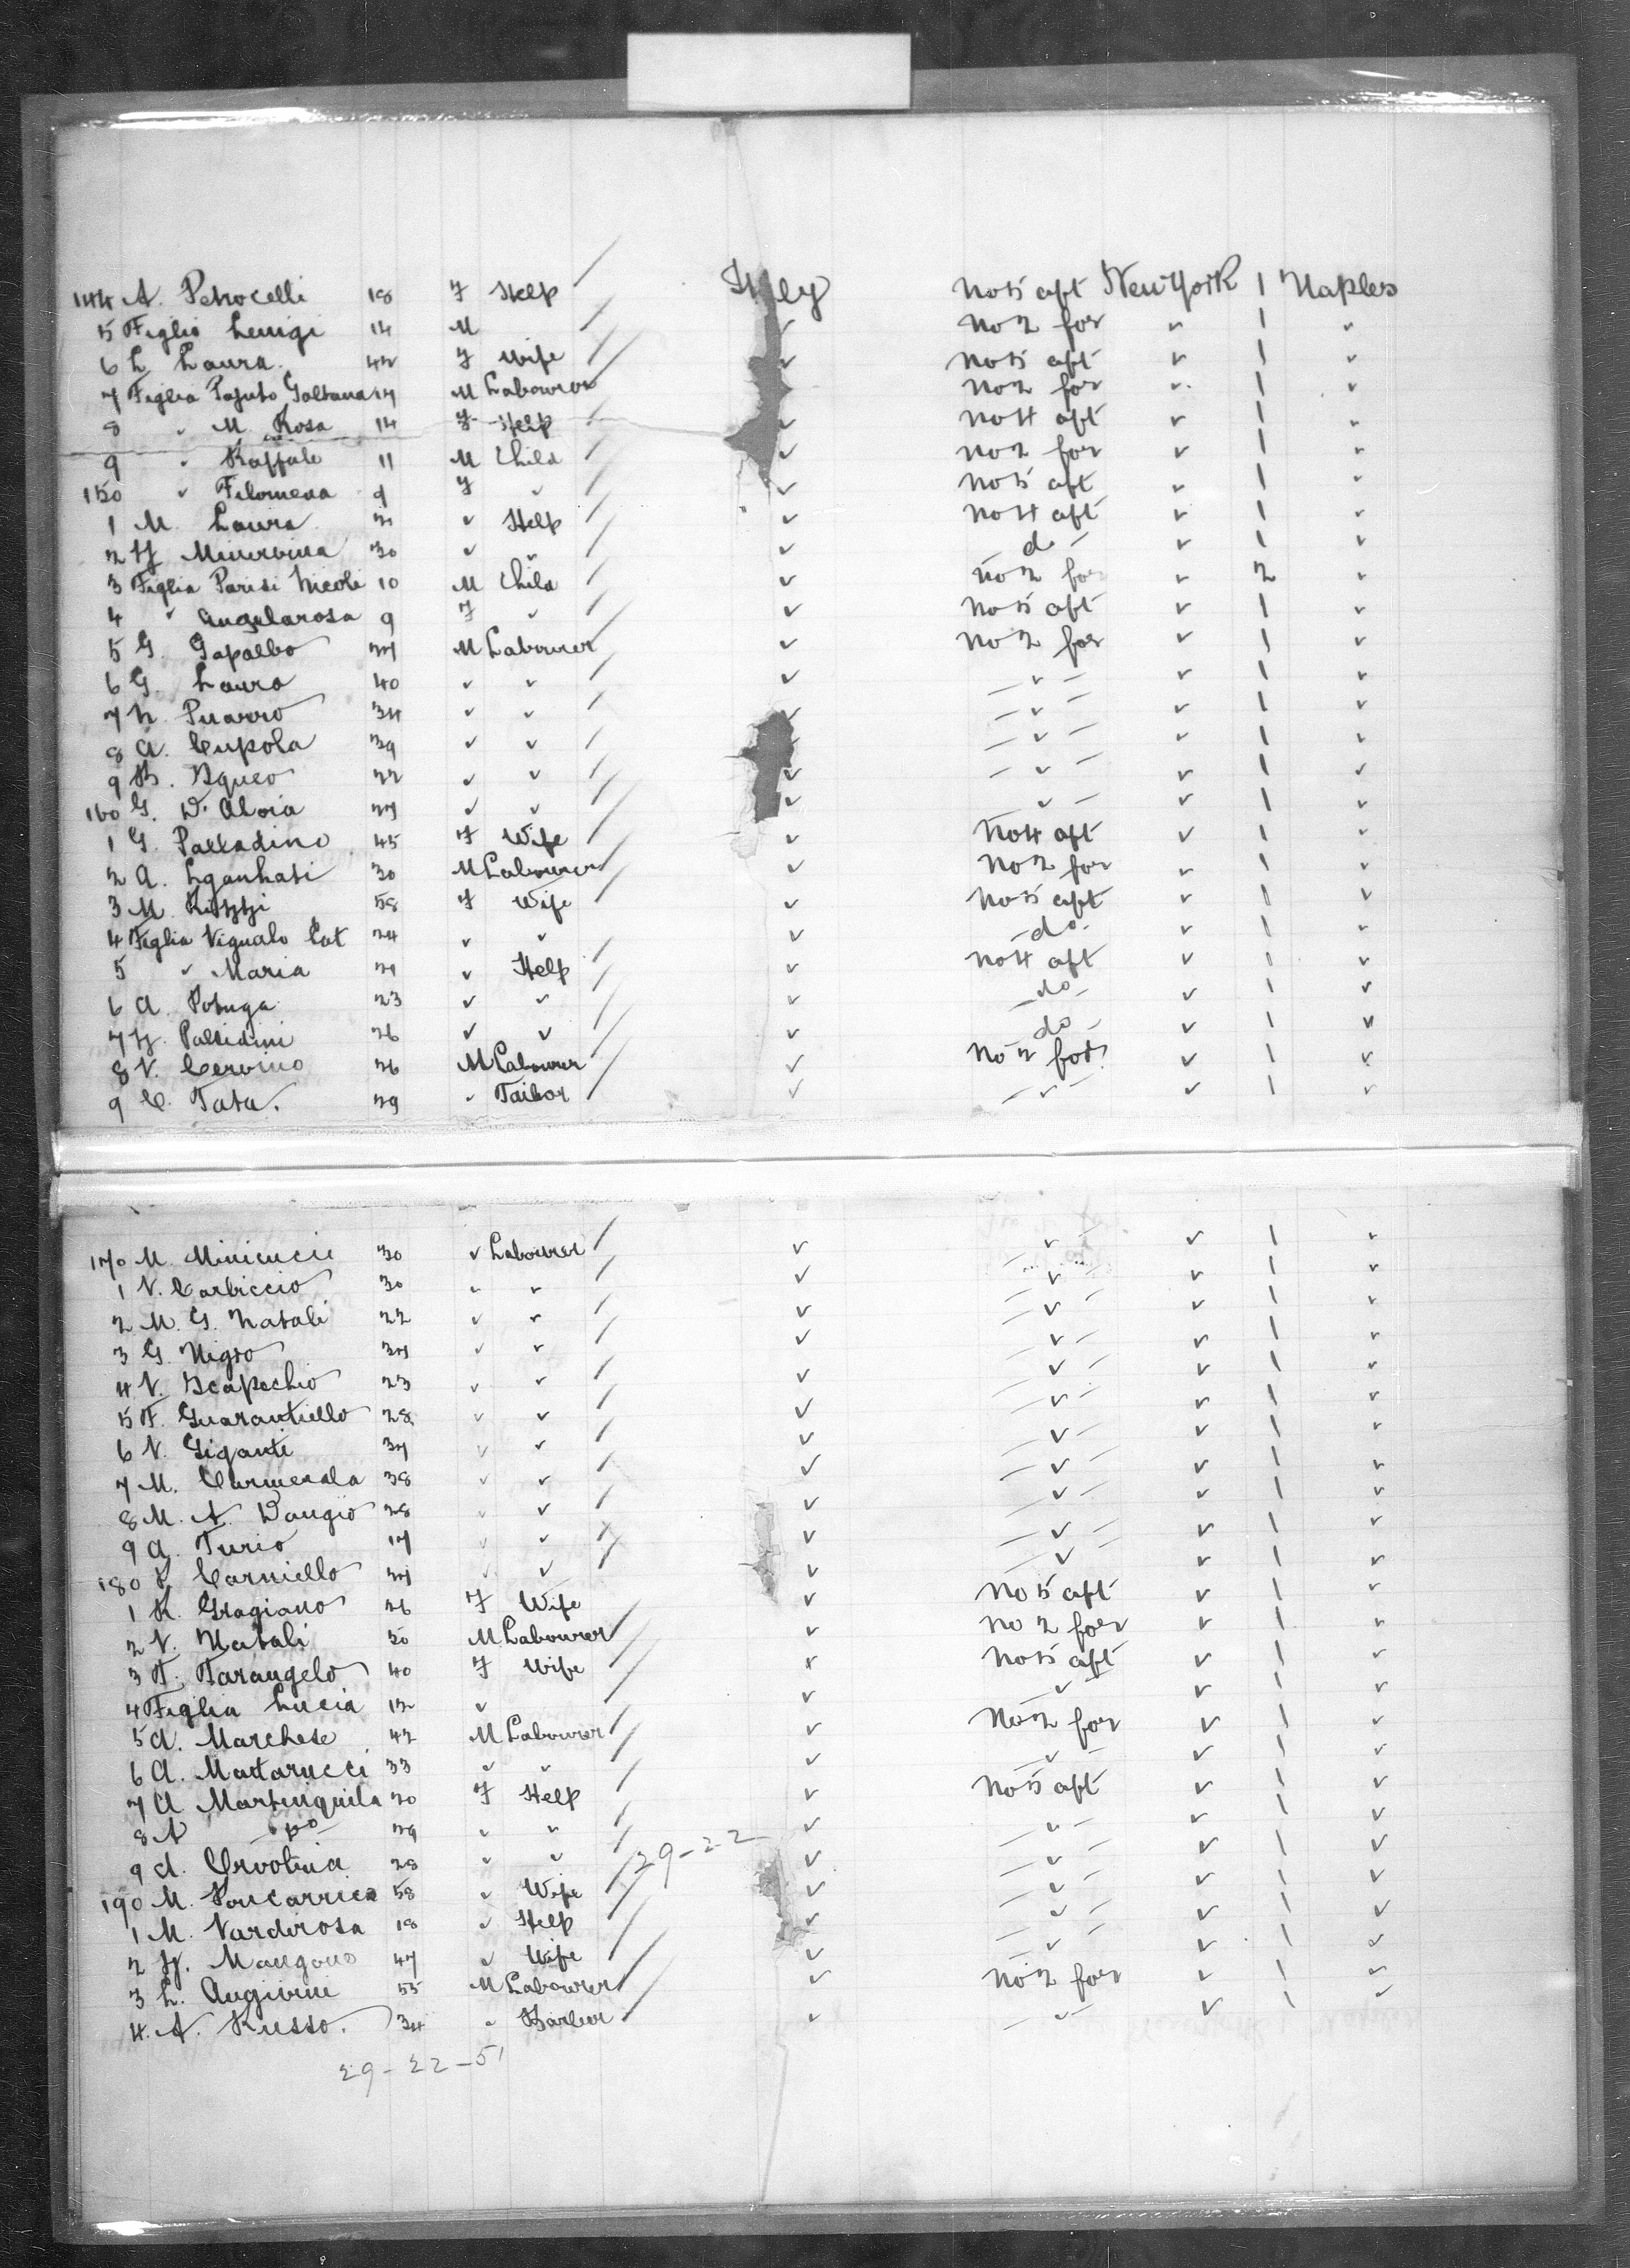 144 A. Petrocelli 18 F Help / Italy No 5 aft New York 1 Naples
5 Figlio Leuigi 14 M / ✓ No 2 for ✓ 1 ✓
6 L. Laura. 42 F Wife / ✓ No 5 aft ✓ 1 ✓
7 Figlia Pasuto Galtana 17 M Labourer / ✓ No 2 for ✓ 1 ✓
8 ✓ M. Rosa 14 F Help / ✓ No 4 aft ✓ 1 ✓
9 ✓ Raffale 11 M Child / ✓ No 2 for ✓ 1 ✓
150 ✓ Filomena 9 F ✓ / ✓ No 5 aft ✓ 1 ✓
1 M. Laura 21 ✓ Help / ✓ No 4 aft ✓ 1 ✓
2 Minervina 30 ✓ ✓ / ✓ — do — ✓ 1 ✓
3 Figlia Parisi Nicoli 10 M Child / ✓ No 2 for ✓ 2 ✓
4 ✓ Angelarosa 9 F ✓ / ✓ No 5 aft ✓ 1 ✓
5 G. Gapalbo 27 M Labourer / ✓ No 2 for ✓ 1 ✓
6 G. Laura 40 ✓ ✓ / ✓ — ✓ — ✓ 1 ✓
7 N. Puarro 34 ✓ ✓ / ✓ — ✓ — ✓ 1 ✓
8 A. Cupola 39 ✓ ✓ / — ✓ — ✓ 1 ✓
9 B. Squeo 22 ✓ ✓ / ✓ — ✓ — ✓ 1 ✓
160 G. D'Aloia 27 ✓ ✓ / ✓ — ✓ — ✓ 1 ✓
1 G. Palladino 45 F Wife / ✓ No 4 aft ✓ 1 ✓
2 A. Lganhati 30 M Labourer / ✓ No 2 for ✓ 1 ✓
3 M. 58 F Wife / ✓ No 5 aft ✓ 1 ✓
4 Figlia Vignalo Cat 24 ✓ ✓ / ✓ — do. ✓ 1 ✓
5 ✓ Maria 21 ✓ Help / ✓ No 4 aft ✓ 1 ✓
6 A. Potuga 23 ✓ ✓ / ✓ — do — ✓ 1 ✓
7 Pallidini 26 ✓ ✓ / ✓ do — ✓ 1 ✓
8 V. Cervino 26 M Labourer / ✓ No 2 for ✓ 1 ✓
9 C. Tata. 29 ✓ Tailor / ✓ — ✓ — ✓ 1 ✓
170 M. Minicucii 30 ✓ Labourer / ✓ — ✓ — ✓ 1 ✓
1 V. Carbiccio 30 ✓ ✓ / ✓ — ✓ — ✓ 1 ✓
2 M. G. Natali 22 ✓ ✓ / ✓ — ✓ — ✓ 1 ✓
3 G. Nigro 37 ✓ ✓ / ✓ — ✓ — ✓ 1 ✓
4 V. Scapechio 23 ✓ ✓ / ✓ — ✓ — ✓ 1 ✓
5 F. Guarantiello 28 ✓ ✓ / ✓ — ✓ — ✓ 1 ✓
6 V. Giganti 37 ✓ ✓ / ✓ — ✓ — ✓ 1 ✓
7 M. Carmenala 38 ✓ ✓ / ✓ — ✓ — ✓ 1 ✓
8 M. A. Dangio 28 ✓ ✓ / ✓ — ✓ — ✓ 1 ✓
9 A. Turio 17 ✓ ✓ / ✓ — ✓ — ✓ 1 ✓
180 Carniello 27 ✓ ✓ / ✓ — ✓ ✓ 1 ✓
1 R. Gragiano 26 F Wife ✓ No 5 aft ✓ 1 ✓
2 V. Natali 50 M Labourer / ✓ No 2 for ✓ 1 ✓
3 F. Tarangelo 40 F Wife / ✓ No 5 aft ✓ 1 ✓
4 Figlia Lucia 12 ✓ / ✓ — ✓ — ✓ 1 ✓
5 A. Marchese 42 M Labourer / ✓ No 2 for ✓ 1 ✓
6 A. Mattarucci 33 ✓ ✓ / ✓ — ✓ — ✓ 1 ✓
7 A Martinquila 20 F Help / ✓ No 5 aft ✓ 1 ✓
8 A — do — 29 ✓ ✓ / ✓ — ✓ — ✓ 1 ✓
9 A. Orvotina 28 ✓ ✓ / 29-22 ✓ — ✓ — ✓ 1 ✓
190 M. Poncarrica 58 ✓ Wife / ✓ — ✓ — ✓ 1 ✓
1 M. Vardirosa 18 ✓ Help / ✓ — ✓ — ✓ 1 ✓
2 Mangano 47 ✓ Wife / ✓ — ✓ — ✓ 1 ✓
3 L. Angivini 55 M Labourer / ✓ No 2 for ✓ 1 ✓
4. A. Russo. 34 ✓ Barber / ✓ — ✓ — ✓ 1 ✓
29-22-51